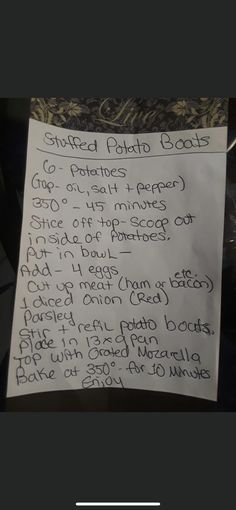 Stuffed Potato Boats
6 - Potatoes
(Top - oil, salt + pepper)
350° - 45 minutes
Slice off top - Scoop out
inside of Potatoes.
Put in bowl -
Add - 4 eggs
etc.
Cut up meat (ham or bacon)
1 diced Onion (Red)
Parsley
Stir + refil potato boats.
Place in 13x9 pan
Top with Grated Mozarella
Bake at 350° - for 10 Minutes
Enjoy